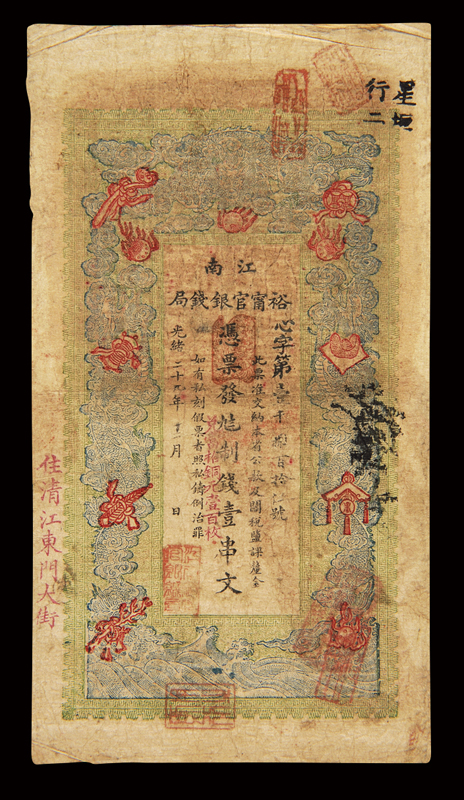 星垣
行二
江南
裕甯官銀錢局
心字第壹千百拾號
此票准交納本省公款及關稅鹽課釐金
憑票發制錢壹串文
拾銅元壹百枚
如有私刻假票者照私鑄例治罪
光緒二十九年十月日
住清江東門大街